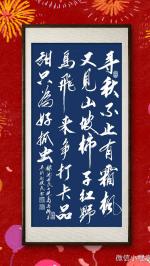 寻秋不止有霜枫
又见山坡柿子红野
鸟飞来争打卡品
甜只为好抓虫
微信小程序